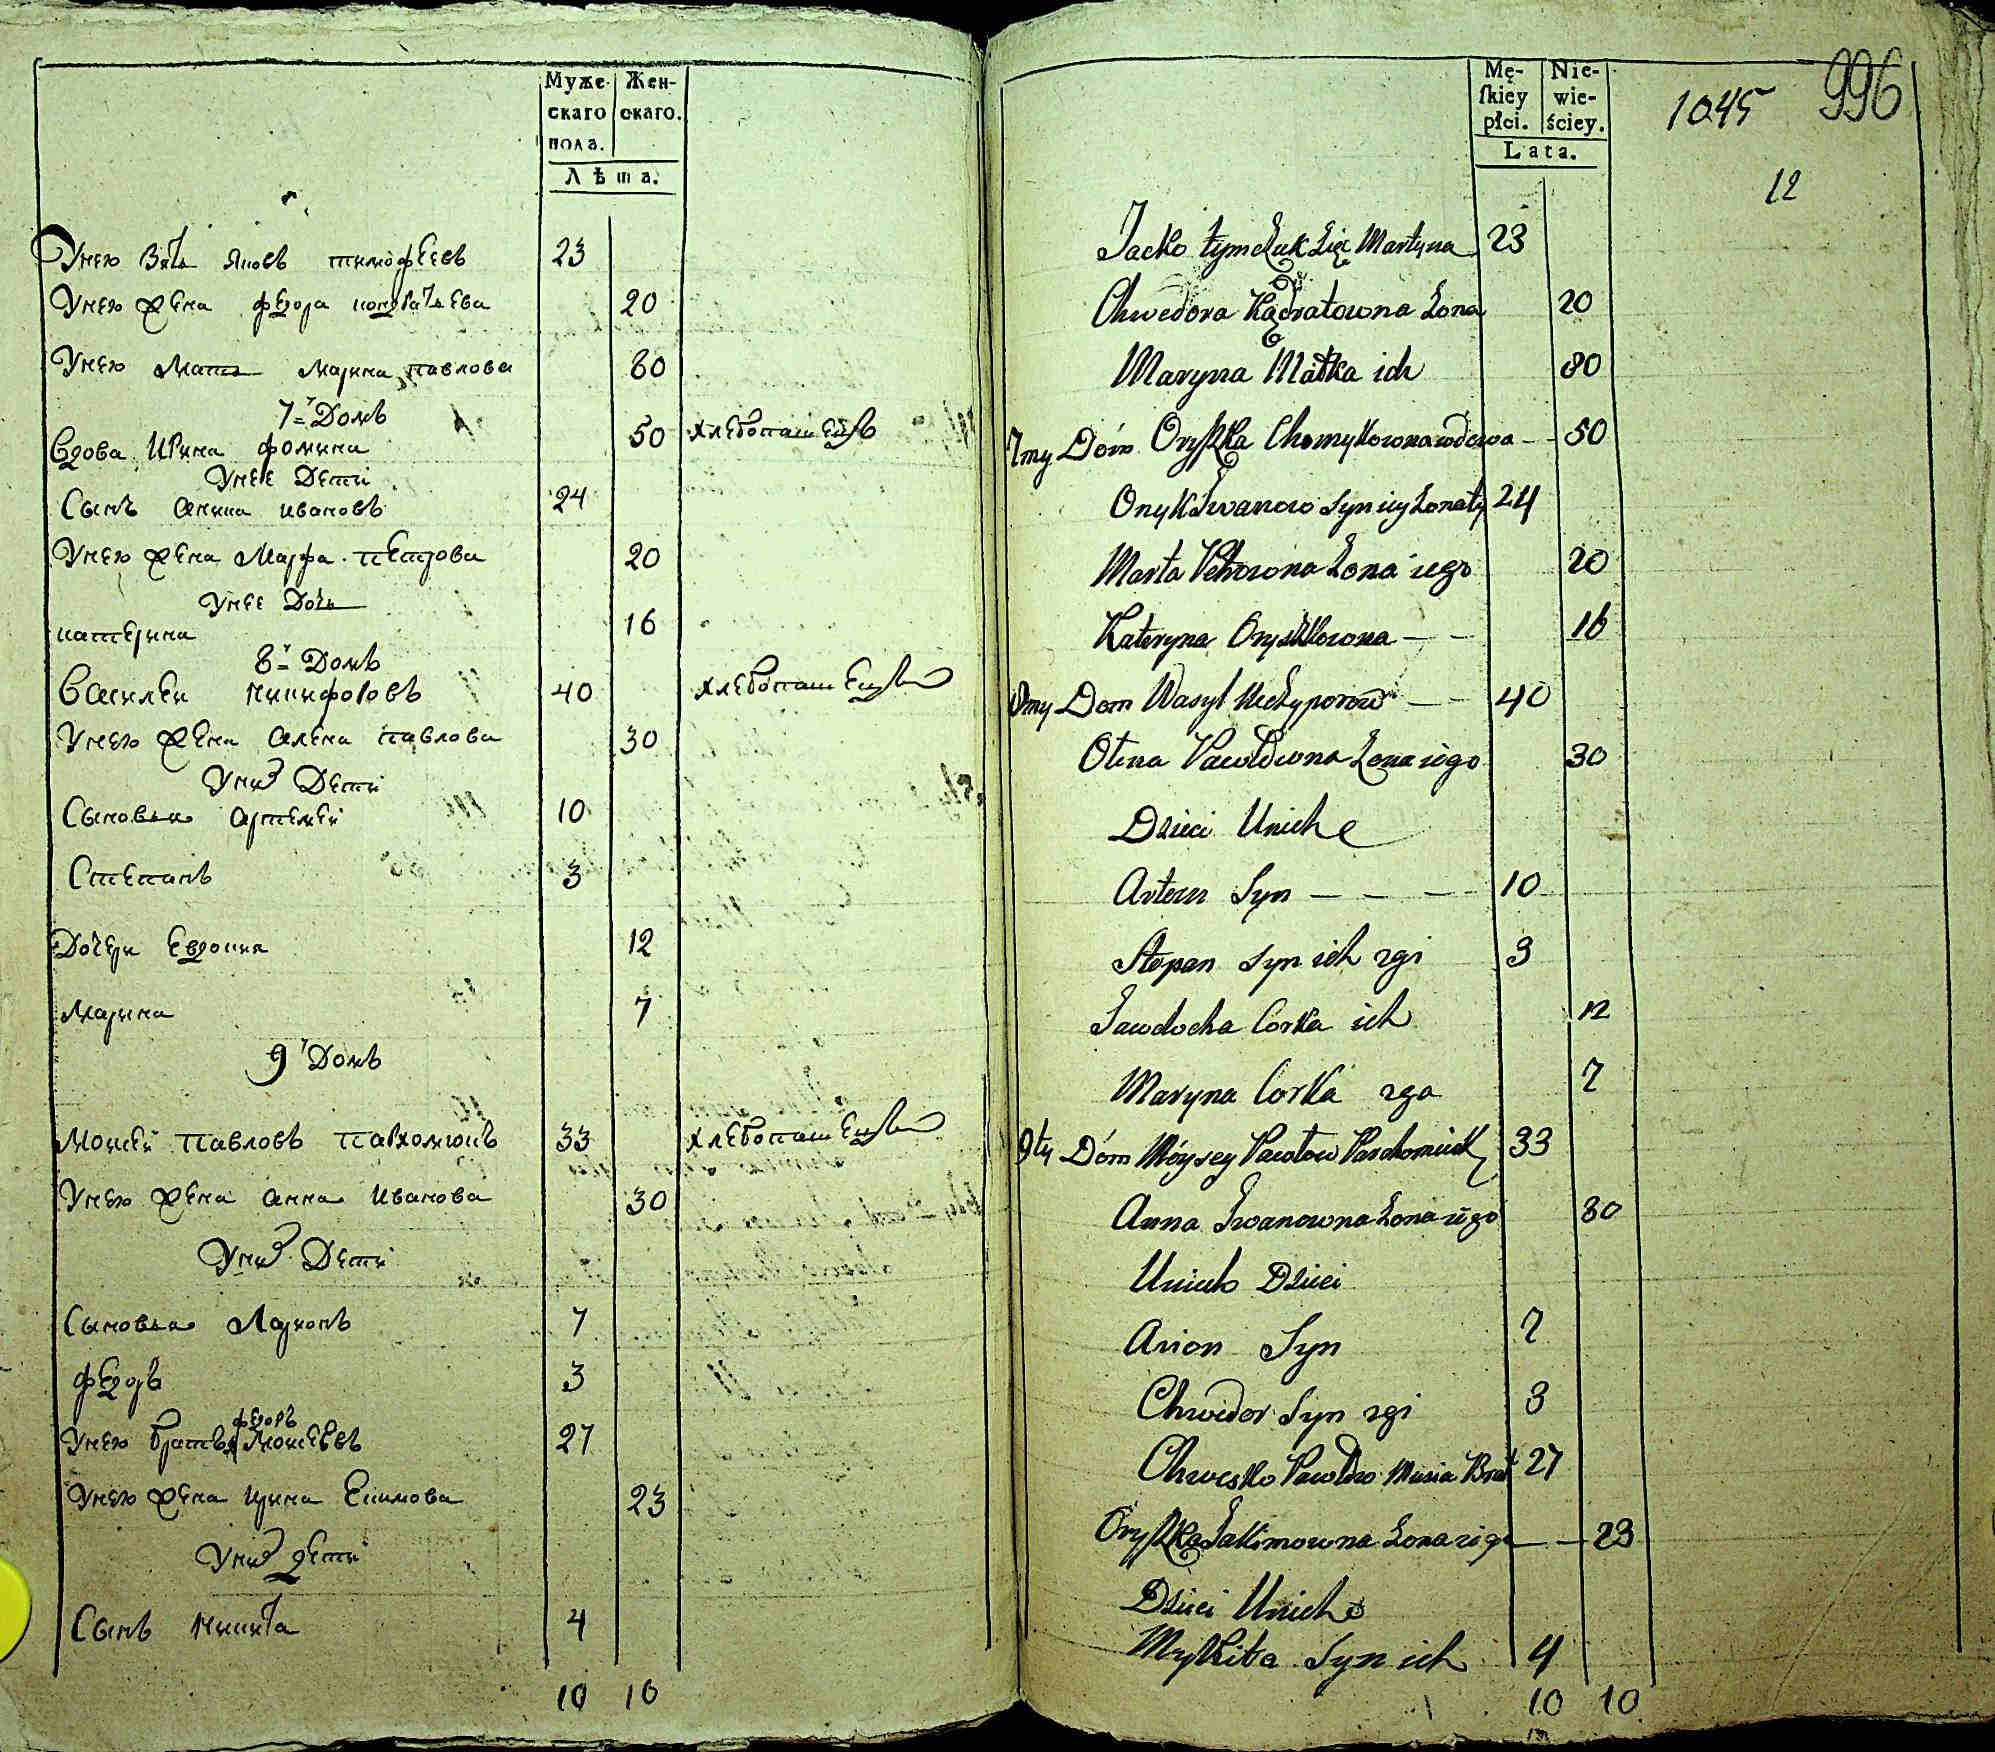 Муже-
скаго
пола.
Жен-
скаго.
Лѣта.
Унего Зять Яковъ тимофеевъ 23
Унего жена федора кондратьева 20
Унего мать марина павлова 80
7й Домъ
Вдова Ирина фомина 50 хлебопашецъ
Унее Дети
Сынъ аника ивановъ 24
Унего жена Марфа петрова 20
Унее Дочь
катерина 16
8й Домъ
Василеи никифоровъ 40 хлебопашецъ
Унего жена алена павлова 30
Уних Дети
Сыновья артемеи 10
Степанъ 3
Дочери Евдокия 12
марина 7
9й Домъ
Моисеи павловъ пархомюкъ 33 хлебопашецъ
Унего жена анна иванова 30
Уних Дети
Сыновья Ларионъ 7
федоръ 3
Унего братья федоръ Моисеевъ 27
Унего жена ирина Екимова 23
Уних дети
Сынъ никита 4
10 10
Mę-
ſkiey
płci.
Nie-
wie-
ściey.
Lata.
1045 996
12
Jacko Tymczuk Zięc Martyna 23
Chwedora Kądratowna Żona 20
Maryna Matka ich 80
7my Dóm Oryszka Chomykowna wdowa 50
Onyk Iwanow Syn iey Żonaty 24
Marta Petrowna Żona iego 20
Kateryna Oryszkowna 16
8my Dom Wasyl Neczyporow 40
Olena Pawłowna Żona iego 30
Dzieci Unich
Artem Syn 10
Stepan Syn ich 2gi 3
Jawdocha Corka ich 12
Maryna Corka 2ga 7
9ty Dóm Móysey Pawłow Parchomiuk 33
Anna Iwanowna Żona iego 30
Unich Dzieci
Arion Syn 7
Chwedor Syn 2gi 3
Chwesko Pawłow Musia Brat 27
Oryszka Jakimowna Żona iego 23
Dzieci Unich
Mykita Syn ich 4
10 10